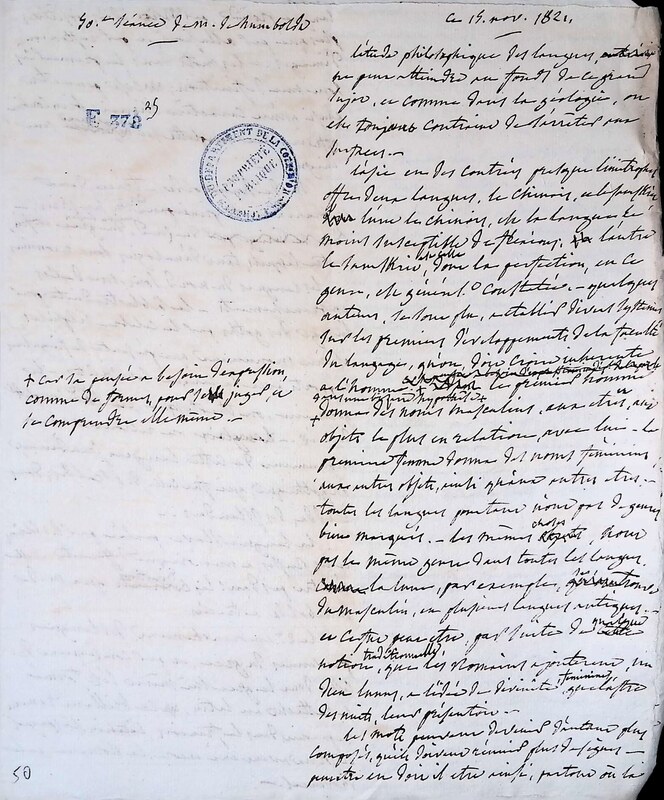 50.e séance de m. de humboldt
ce 15. nov. 1821.
E 378 25
DEPARTEMENT DE LA
PROPRIÉTÉ PUBLIQUE
l'étude philosophique des langues,
ne peut atteindre au fond de ce grand
sujet, et comme dans la géologie, on
est toujours contraint de s'arrêter aux
surfaces. —
l'asie en des contrées presque limitrophes
offre deux langues, le chinois, et le sanskrit
l'une le chinois, est la langue le
moins susceptible de flexions, l'autre
le sanskrit, est celle dont la perfection, en ce
genre, est général.t constatée. — quelques
auteurs, se sont plu, a etablir divers systêmes
sur les premiers développements de la faculté
du langage, qu'on doit croire inherente
a l'homme le premier homme
donna des noms masculins, aux etres, aux
objets le plus en relation, avec lui — la
premiere femme donna des noms feminins
aux autres objets, ou à d'autres etres. —
toutes les langues pourtant n'ont pas de genres
bien marqués. — les mêmes choses, n'ont
pas le même genre dans toutes les langues.
la lune, par exemple,
du masculin, en plusieurs langues antiques. —
et c'est peut etre, par suite de quelque
notion traditionnelle, que les Romains ajouterent, un
dieu lunus, a l'idée de divinité feminine, que l'astre
des nuits, leur présentait. —
les mots peuvent devenir d'autant plus
composés, qu'ils doivent réunir plus de signes —
peut-être en doit il etre ainsi, partout où la
+ car la pensée a besoin d'expression,
comme de formes, pour se juger et
se comprendre elle même. —
50